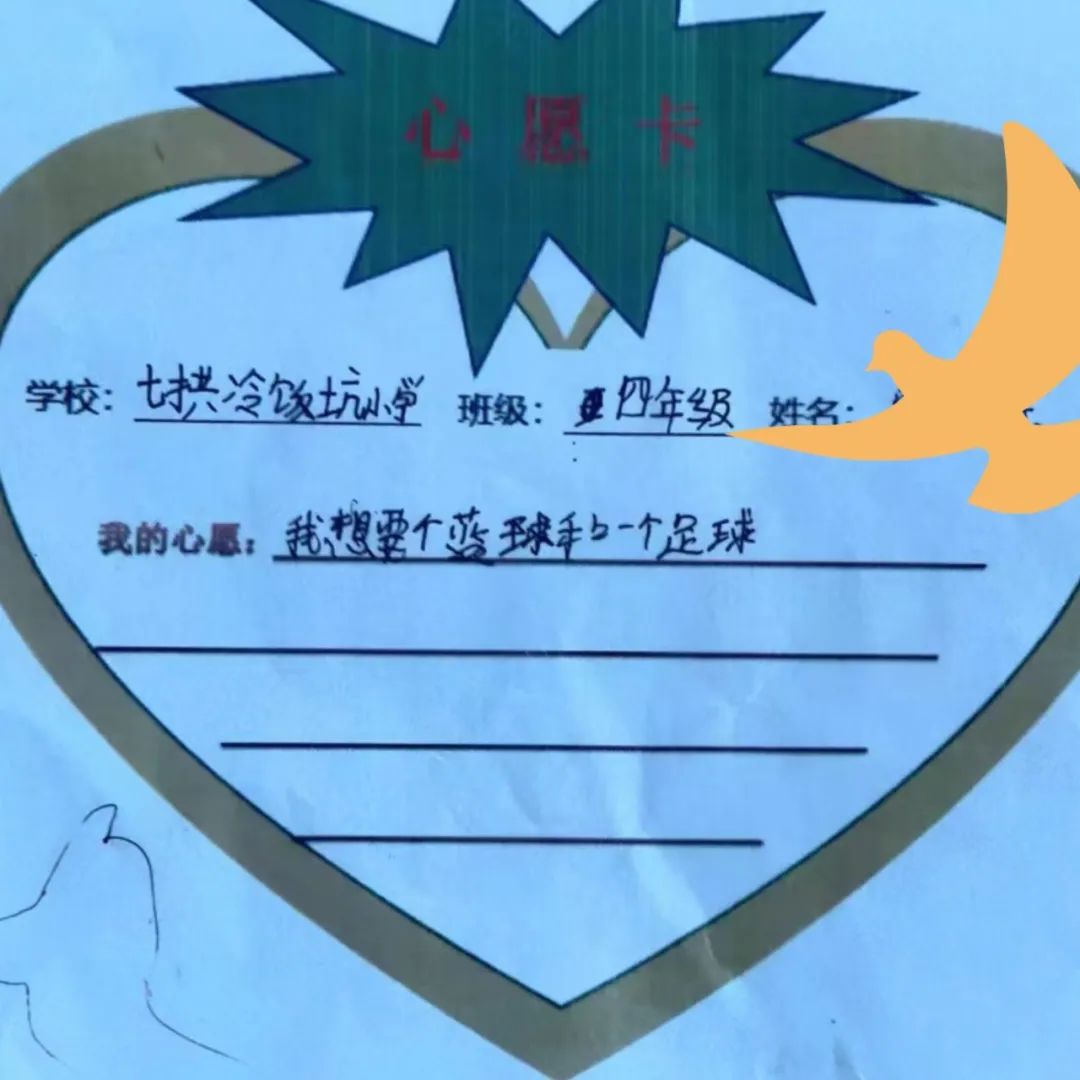 心愿卡
学校：七拱冷饭坑小学 班级：四年级 姓名：
我的心愿：我想要个篮球和一个足球